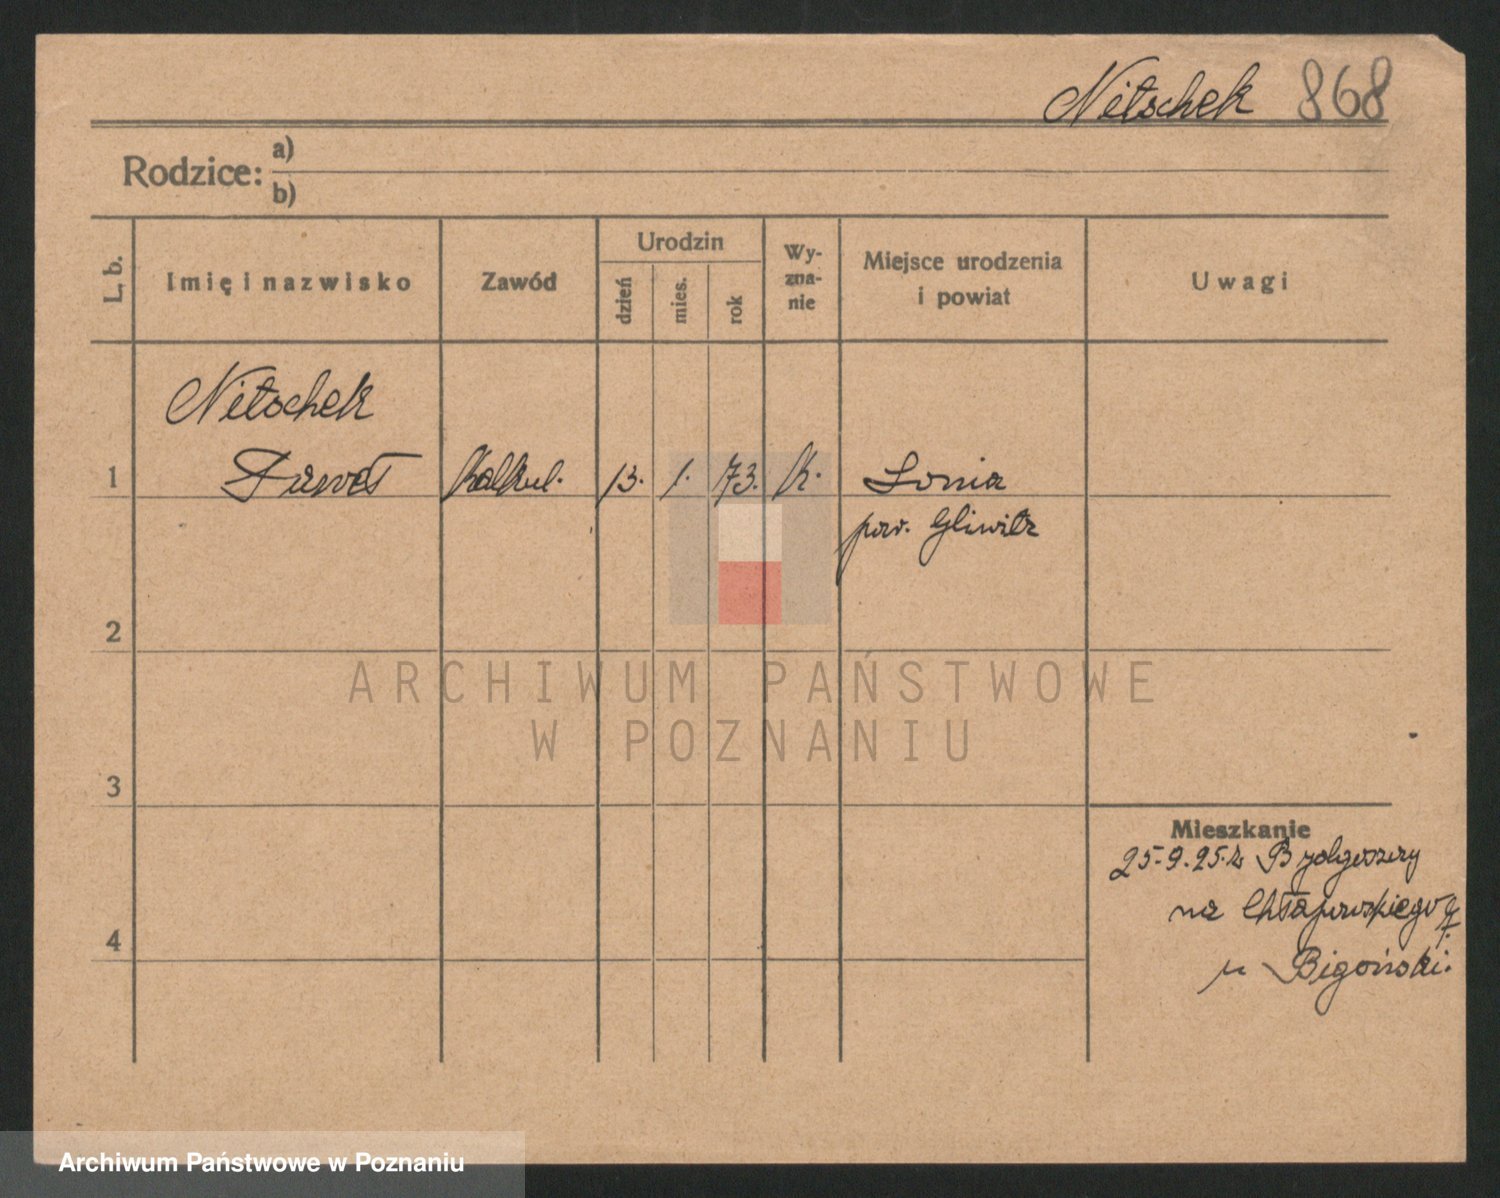 Nitschek 868
Rodzice: a)
b)
L. b. Imię i nazwisko Zawód Urodzin dzień mies. rok Wy-zna-nie Miejsce urodzenia i powiat Uwagi
Nitschek
1 Paweł Kalkul. 13. 1. 73. K. Lonia
pow. Gliwitz
2
ARCHIWUM PAŃSTWOWE
W POZNANIU
3
Mieszkanie
25.9.25. z Bydgoszczy
na Chłapowskiego
4
u Bigoński.
Archiwum Państwowe w Poznaniu